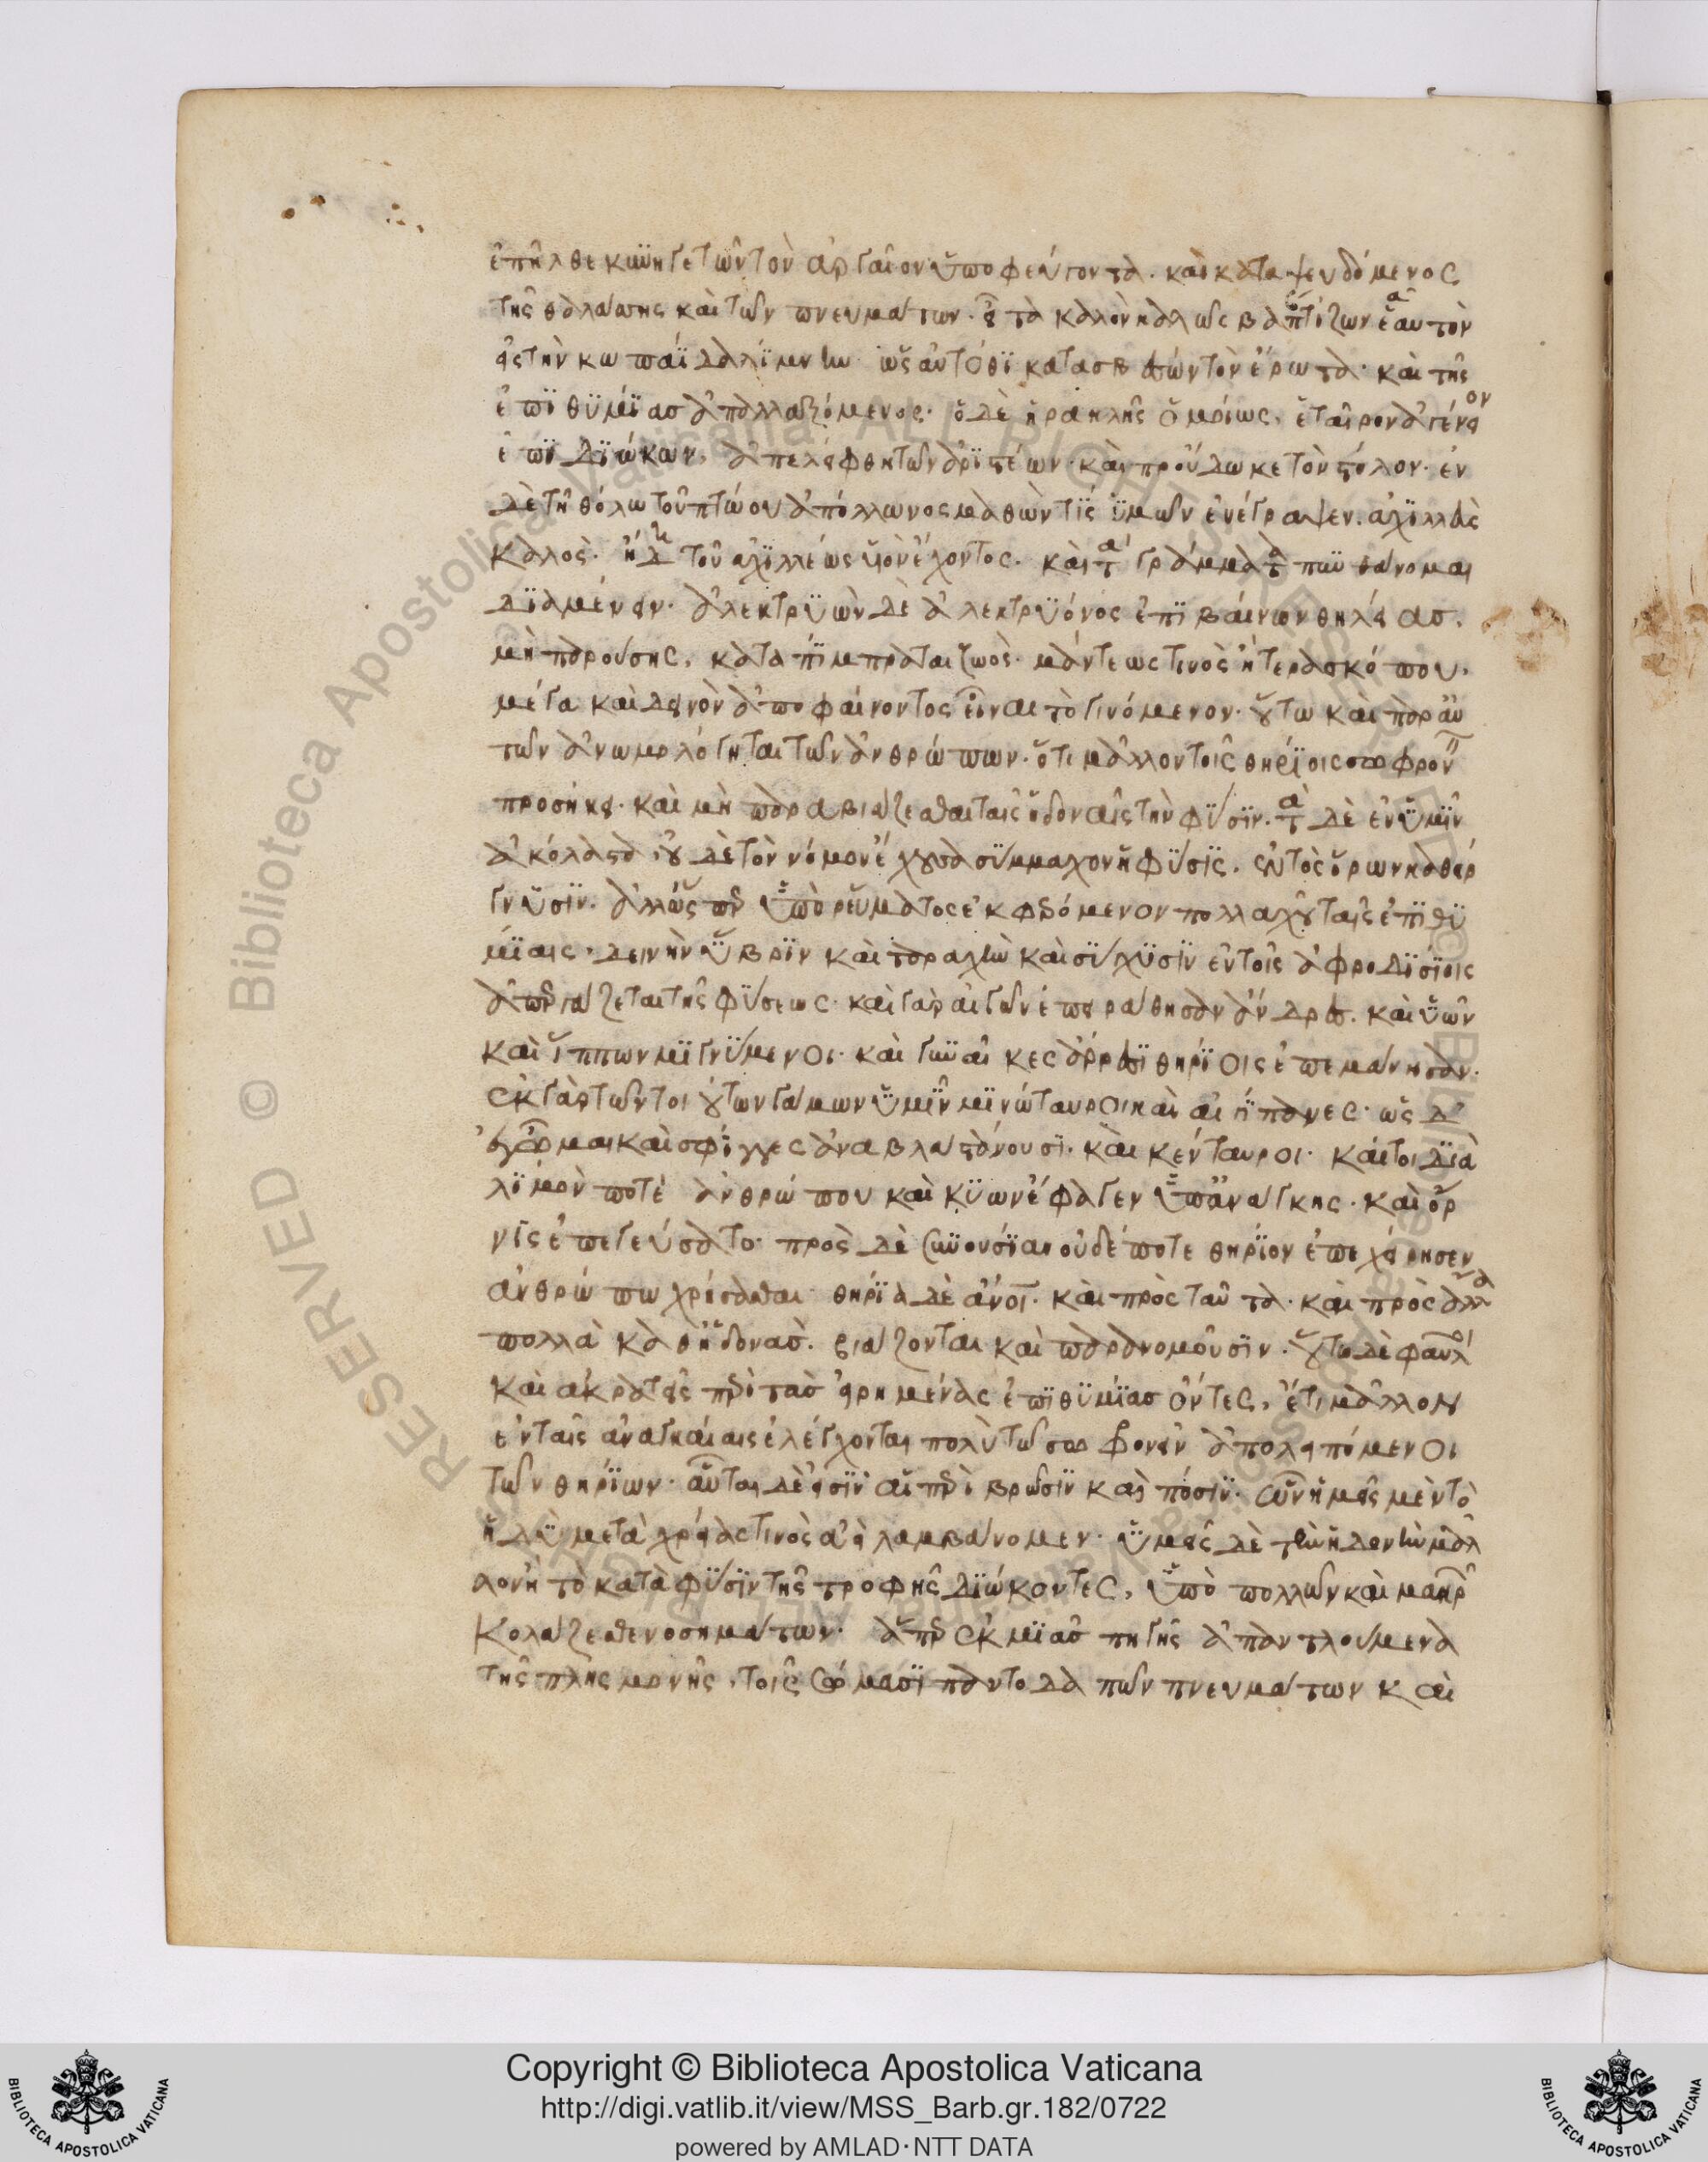 ἐπῆλθε κυνηγετῶν τὸν ἀργαῖον ὑποφεύγοντα. καὶ καταψευδόμενος
τῆς θαλάσσης καὶ τῶν πνευμάτων. εἶτα καλὸν καλῶς βαπτίζων ἑαυτὸν
εἰς τὴν κωπαΐδα λίμνην ὡς αὐτόθι κατασβέσων τὸν ἔρωτα. καὶ τῆς
ἐπιθυμίας ἀπαλλαξόμενος. ὁ δὲ ἡρακλῆς ὁμοίως. ἑταῖρον ἀγένειον
ἐπιδιώκων, ἀπελείφθη τῶν ἀριστέων. καὶ προὔδωκε τὸν στόλον. ἐν
δὲ τῆ θόλω τοῦ πτώου ἀπόλλωνος μαθὼν τίς ὑμῶν ἐνέγραψεν. ἀχιλλεὺς
καλὸς. ἤδη τοῦ ἀχιλλέως υἱὸν ἔχοντος. καὶ τὰ γράμματα πυνθάνομαι
διαμένειν. ἀλεκτρυὼν δὲ ἀλεκτρυόνος ἐπιβαίνων θηλείας.
μὴ παρούσης, καταπίμπραται ζωὸς. μάντεως τινὸς ἢ τερασκόπου.
μέγα καὶ δεινὸν ἀποφαίνοντος εἶναι τὸ γινόμενον. οὕτω καὶ παραὐ
τῶν ἀνωμολόγηται τῶν ἀνθρώπων. ὅτι μᾶλλον τοῖς θηρίοις σωφρονεῖν
προσήκει. καὶ μὴ παραβιάζεσθαι ταῖς ἡδοναῖς τὴν φύσιν. τὰ δὲ ἐν ὑμῖν
ἀκόλαστα, οὐδὲ τὸν νόμον ἔχουσα σύμμαχον ἡ φύσις. ἐντὸς ὅρων καθείρ
γνυσιν. ἀλλ' ὥσπερ ὑπὸ ῥεύματος ἐκφερόμενον πολλαχοῦ ταῖς ἐπιθυ
μίαις. δεινὴν ὕβριν καὶ ταραχὴν καὶ σύγχυσιν ἐν τοῖς ἀφροδισίοις
ἀπεργάζεται τῆς φύσεως. καὶ γὰρ αἰγῶν ἐπειράθησαν ἄνδρες. καὶ ὑῶν
καὶ ἵππων μιγνύμενοι. καὶ γυναῖκες ἄρρεσι θηρίοις ἐπεμάνησαν.
ἐκ γὰρ τῶν τοιούτων γάμων ὑμῖν μινώταυροι καὶ αἰγίπανες. ὡς δ'
ἐγῶμαι καὶ σφίγγες ἀναβλαστάνουσι. καὶ κένταυροι. καίτοι διὰ
λιμὸν ποτὲ ἀνθρώπου καὶ κύων ἔφαγεν ὑπἀνάγκης. καὶ ὄρ
νις ἐπεγεύσατο. πρὸς δὲ συνουσίαν οὐδέποτε θηρίον ἐπεχείρησεν
ἀνθρώπω χρήσασθαι. θηρία δὲ ἄνοι. καὶ πρὸς ταῦτα. καὶ πρὸς ἄλλα
πολλὰ καθἡδονὰς. βιάζονται καὶ παρανομοῦσιν. οὕτω δὲ φαῦλοι
καὶ ἀκρατεῖς περὶ τὰς εἰρημένας ἐπιθυμίας ὄντες, ἔτι μᾶλλον
ἐν ταῖς ἀναγκαίαις ἐλέγχονται πολὺ τῶ σωφρονεῖν ἀπολειπόμενοι
τῶν θηρίων. αὗται δὲ εἰσὶν αἱ περὶ βρῶσιν καὶ πόσιν. ὧν ἡμεῖς μὲν τὸ
ἡδὺ μετὰ χρείας τινὸς ἀεὶ λαμβάνομεν. ὑμεῖς δὲ τὴν ἡδονὴν μᾶλ
λον ἢ τὸ κατὰ φύσιν τῆς τροφῆς διώκοντες, ὑπὸ πολλῶν καὶ μακρῶν
κολάζεσθε νοσημάτων. ἅπερ ἐκ μιᾶς πηγῆς ἀπαντλούμενα
τῆς πλησμονῆς, τοῖς σώμασι παντοδαπῶν πνευμάτων καὶ
Copyright © Biblioteca Apostolica Vaticana
http://digi.vatlib.it/view/MSS_Barb.gr.182/0722
powered by AMLAD·NTT DATA